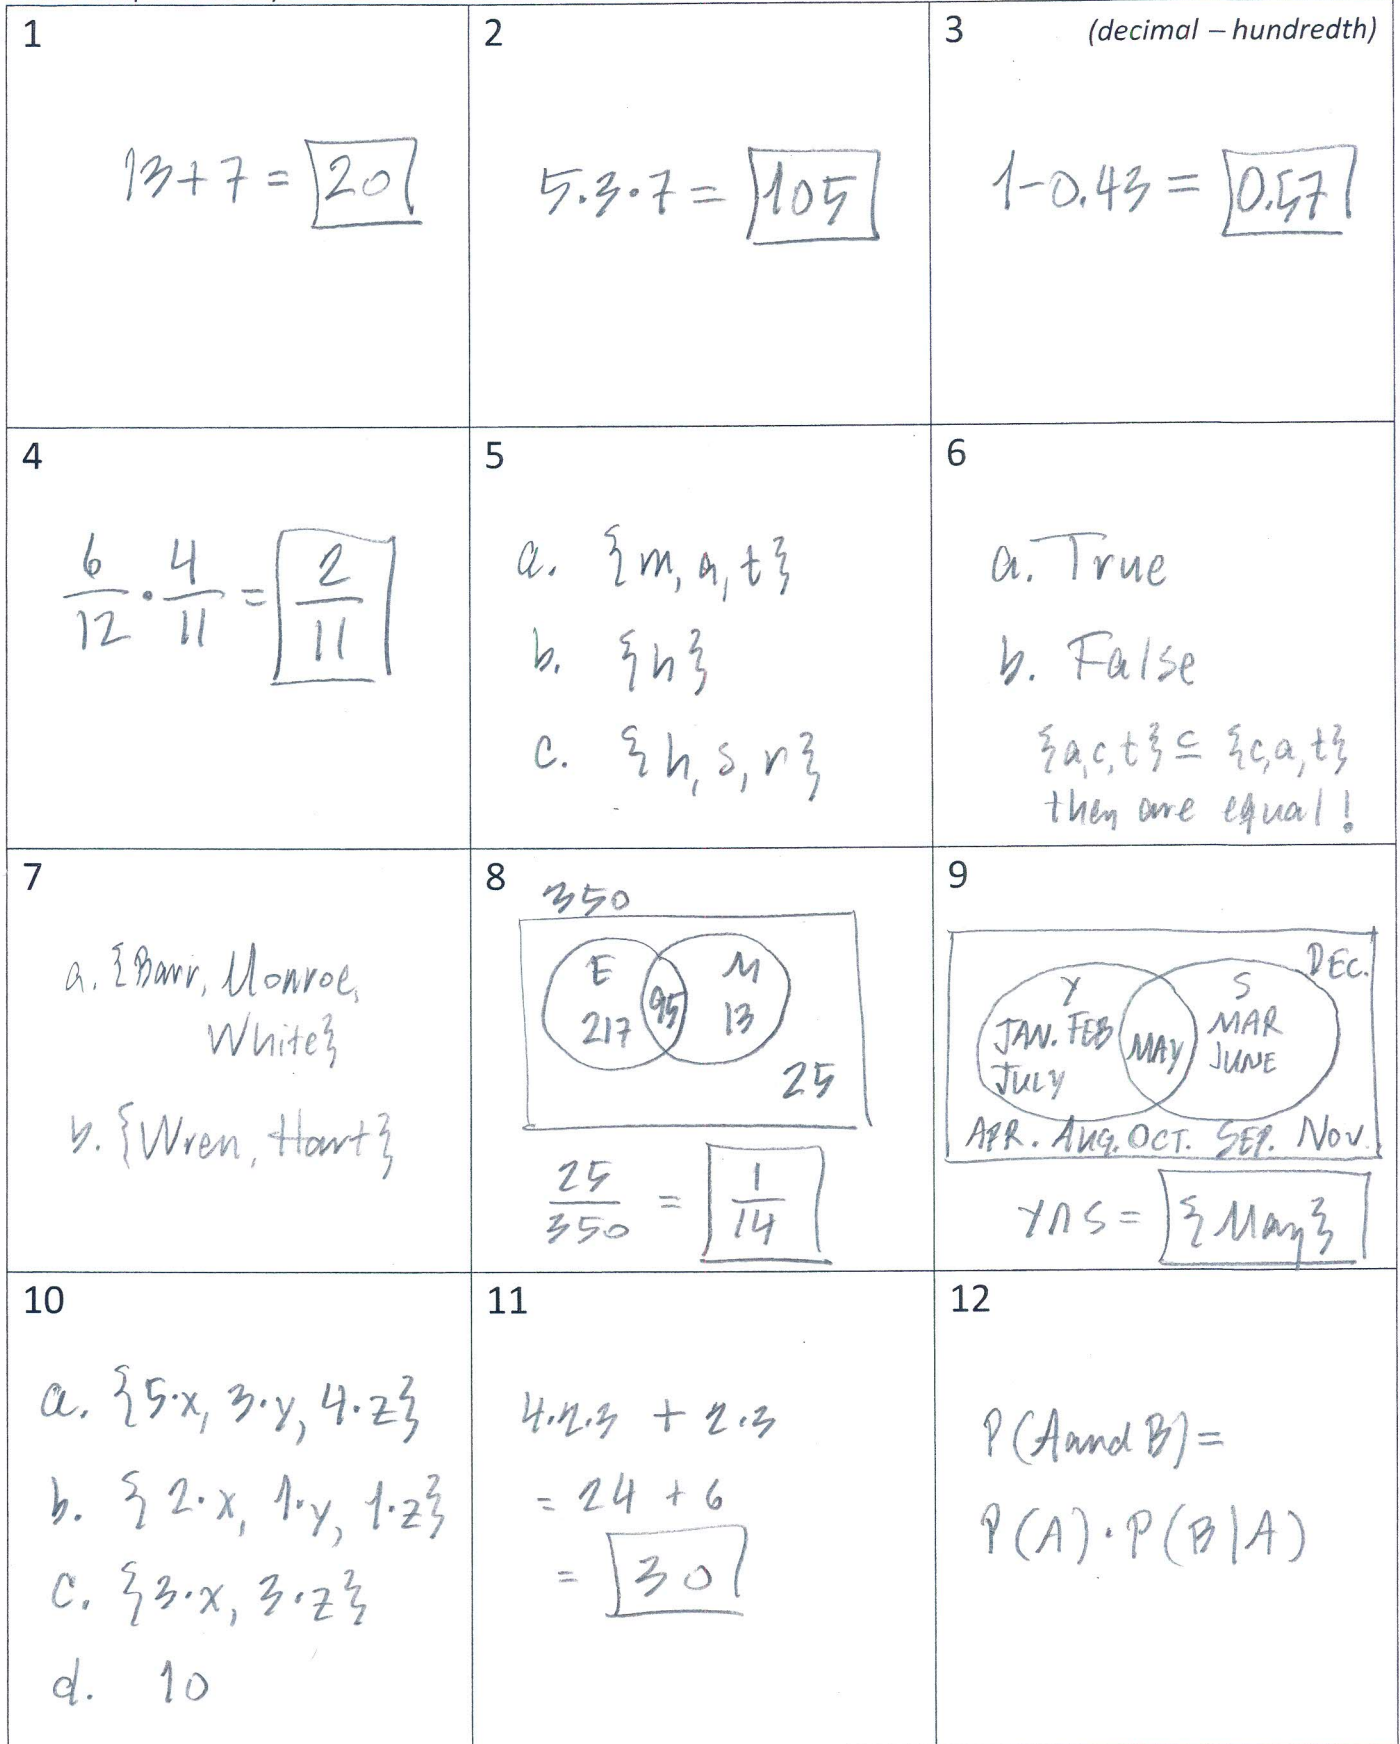 1
13+7 = 20
2
5·3·7 = 105
3 (decimal – hundredth)
1-0.43 = 0.57
4
6/12 · 4/11 = 2/11
5
a. {m, a, t}
b. {h}
c. {h, s, r}
6
a. True
b. False
{a,c,t} ⊆ {c,a,t}
they are equal!
7
a. {Barr, Monroe,
White}
b. {Wren, Hart}
8
350
E M
217 95 13
25
25/350 = 1/14
9
DEC.
Y S
JAN. FEB MAY MAR
JULY JUNE
APR. AUG. OCT. SEP. NOV.
Y∩S = {May}
10
a. {5·x, 3·y, 4·z}
b. {2·x, 1·y, 1·z}
c. {3·x, 3·z}
d. 10
11
4·2·3 + 2·3
= 24 + 6
= 30
12
P(A and B) =
P(A)·P(B|A)